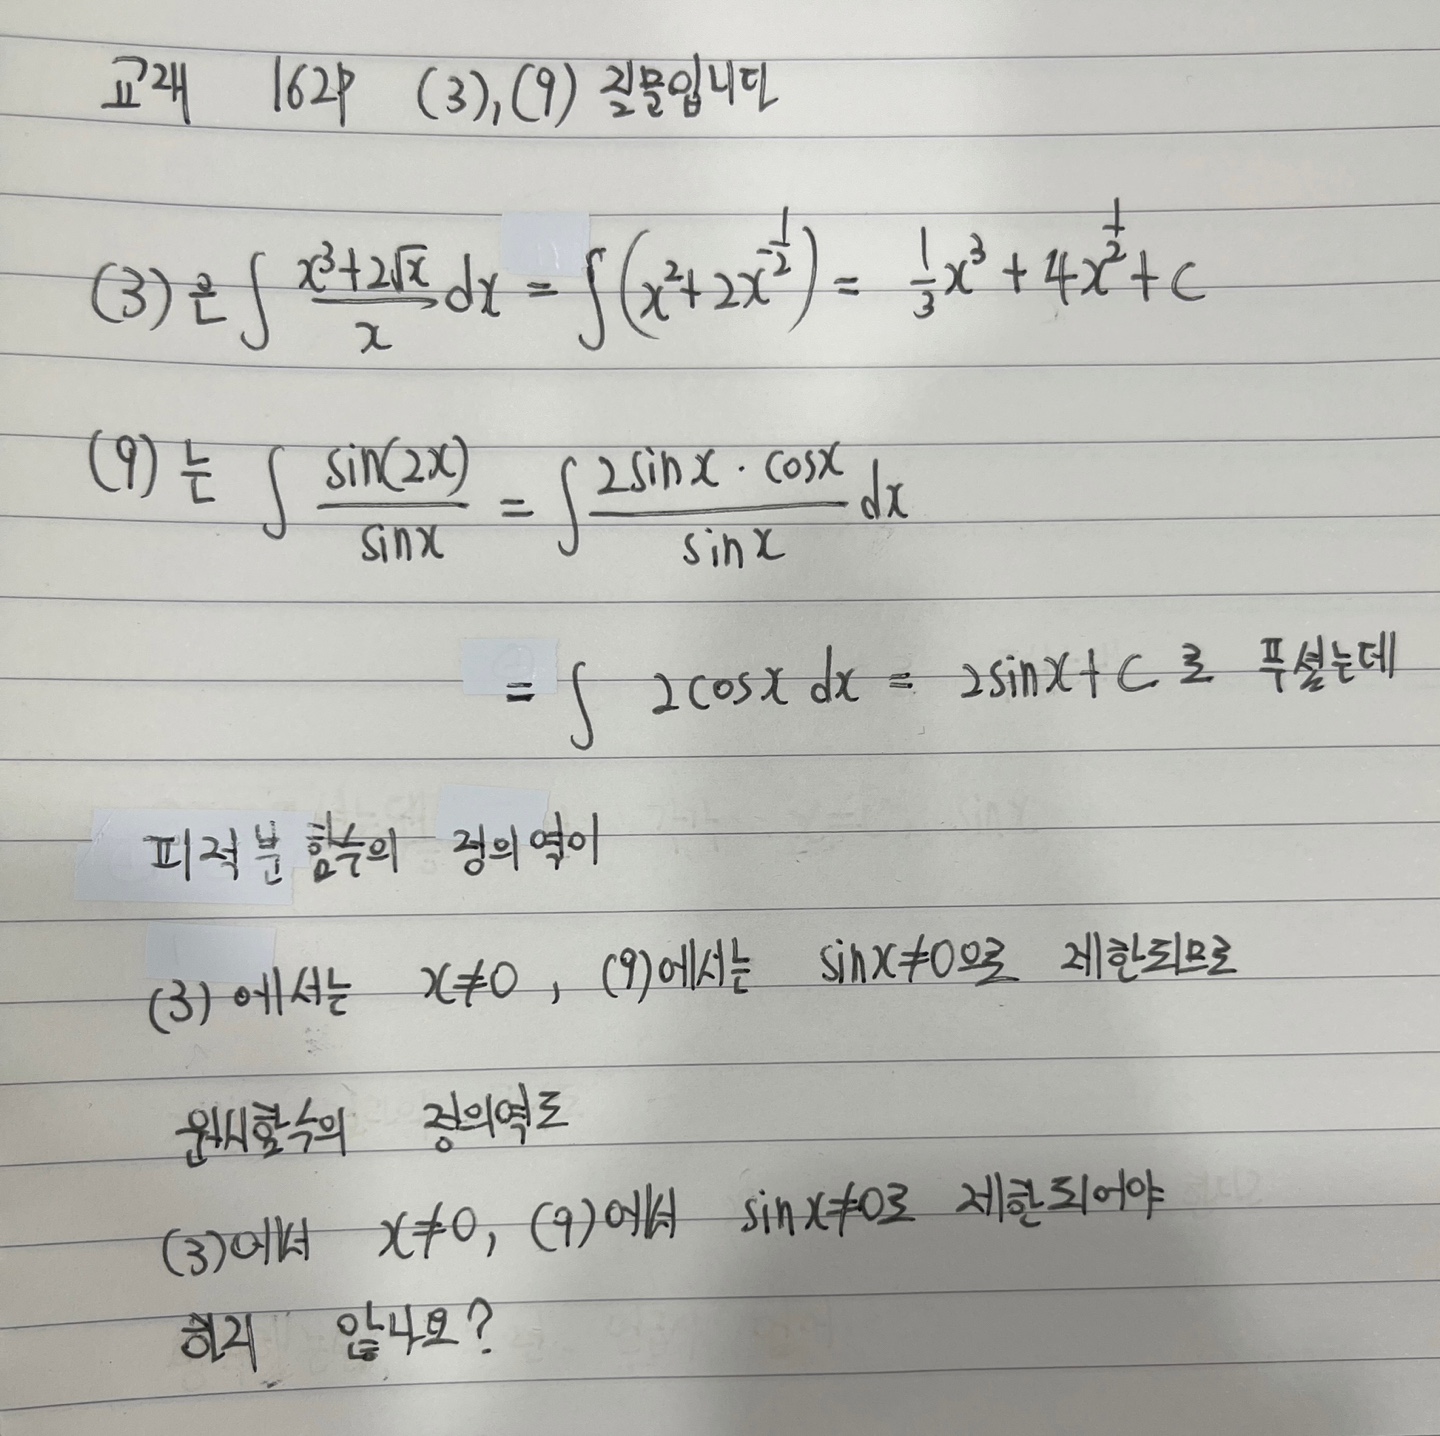 교재 162P (3), (9) 질문입니다
(3)은 ∫ (x³+2√x)/x dx = ∫(x²+2x^(-1/2)) = 1/3 x³ + 4x^(1/2) + C
(9)는 ∫ sin(2x)/sinx = ∫ (2sinx · cosx)/sinx dx
= ∫ 2cosx dx = 2sinx + C 로 푸셨는데
피적분함수의 정의역이
(3)에서는 x≠0, (9)에서는 sinx≠0으로 제한되므로
원시함수의 정의역도
(3)에서 x≠0, (9)에서 sinx≠0로 제한되어야
하지 않나요?